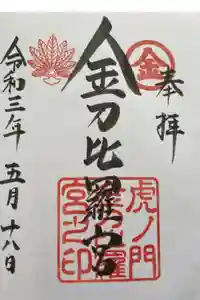 奉拝
金
金刀比羅宮
虎ノ門
金刀比羅
宮之印
令和三年
五月十八日